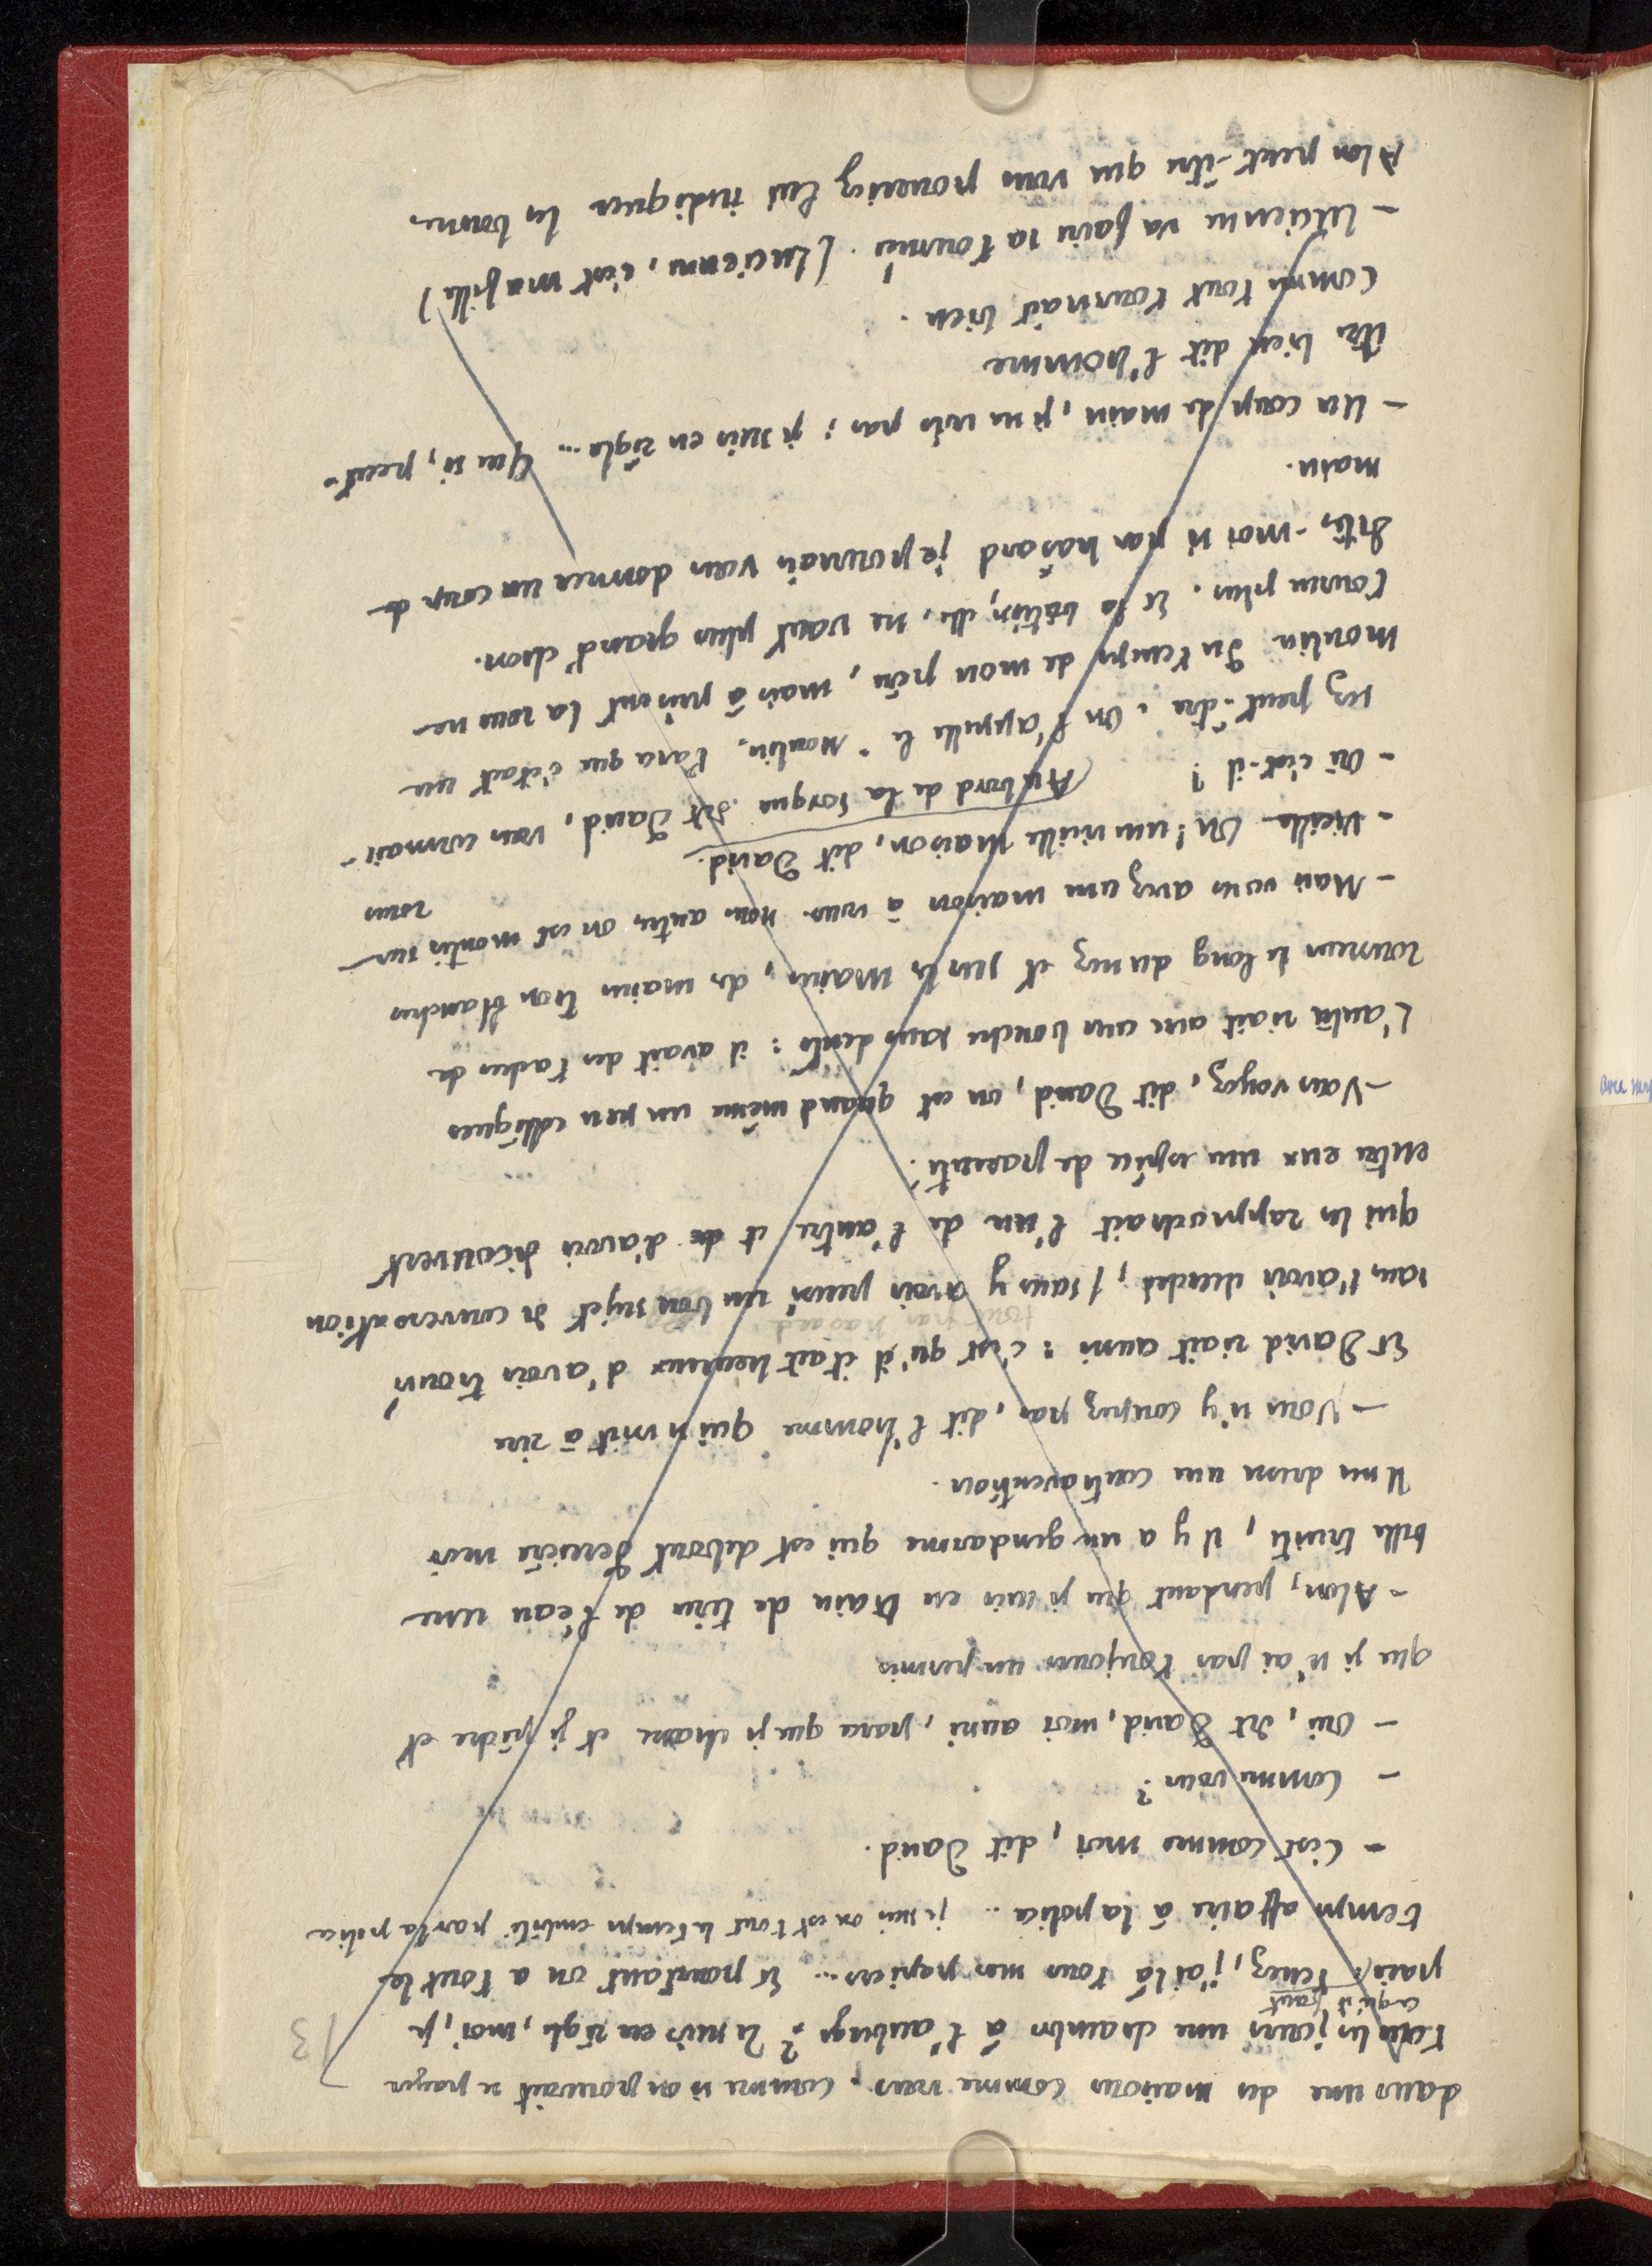 13
dans une des maisons comme vous. Comme si on pouvait se payer
tous les jours une chambre à l'auberge? Je suis en règle, moi, je
ce qu'il faut
paie. Tenez, j'ai là tous mes papiers... Et pourtant on a tout le
temps affaire à la police... je suis on est tout le temps embêté par la police
- C'est comme moi, dit David.
- Comme vous?
- Oui, dit David, moi aussi, parce que je chasse et je pêche et
que je n'ai pas toujours un permis
- Alors, pendant que je suis en train de tirer de l'eau une
belle truite, il y a un gendarme qui est debout derrière moi
Il me dresse une contravention.
- Vous n'y coupez pas, dit l'homme qui se mit à rire
Et David riait aussi : c'est qu'il était heureux d'avoir trouvé
tout par hasard
sans l'avoir cherché, sans y avoir pensé un bon sujet de conversation
qui les rapprochait l'un de l'autre et de d'avoir découvert
entre eux une espèce de parenté.
- Vous voyez, dit David, on est quand même un peu collègues
L'autre riait avec une bouche sans dents : il avait des taches de
rousseur le long du nez et sur les mains, des mains trop blanches
- Mais vous avez une maison à vous. Nous autres, on est montés sur
roues
- Vieille Oh! une vieille maison, dit David.
- Où c'est-il?
Au bord de la Sorgue dit David, vous connais-
sez peut-être. On l'appelle le "Moulin" parce que c'était un
moulin du temps de mon père, mais à présent la roue ne
tourne plus. Et la bâtisse, elle, ne vaut plus grand'chose.
Dites-moi si par hasard je pourrais vous donner un coup de
main.
- Un coup de main, je ne vois pas; je suis en règle... Que si, peut-
être bien dit l'homme
Comme tout tournait bien.
- Lucienne va faire sa tournée. (Lucienne, c'est ma fille)
Alors peut-être que vous pourriez lui indiquer les bonnes